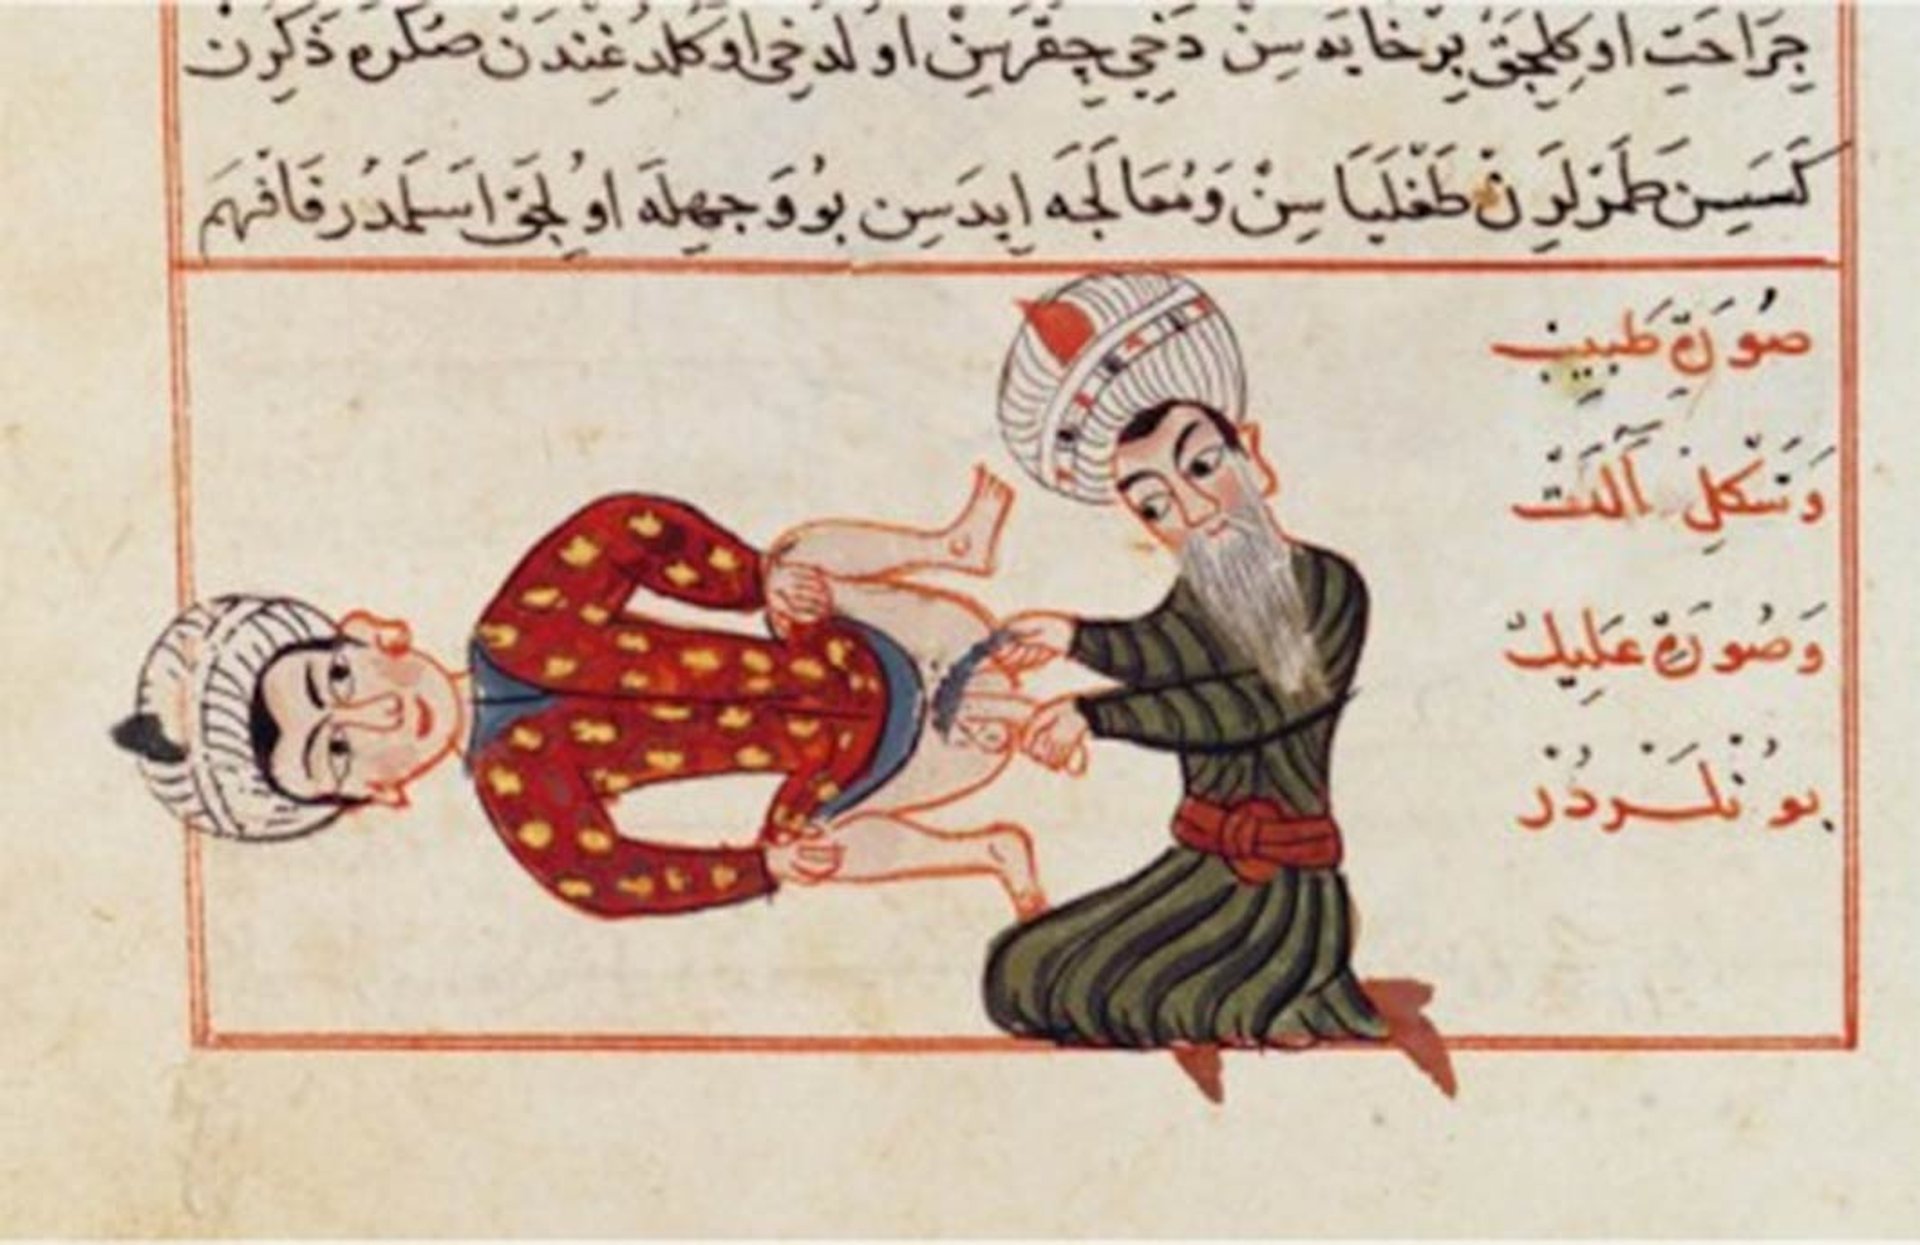 جِرَاحَتِ اوكِلِجَقْ بِرْخَايَه سِنْ دَخِي چِقَرَسِنْ اوُلدَخِي اوكلدغِندَنْ صُكْرَه ذَكَرِنْ
كَسَسِنْ طَمَرْلَرِنْ طَغْلَيَاسِنْ وَمُعَالَجَه ايدَسِن بُووَجهِلَه اوُلِجَقْ اَسْلَمدُر فَافْهَم
صُورَةِ طَبِيبْ
وَشَكلِ آلَتْ
وَصُورَةِ عَلِيلْ
بُونْلَرْدُرْ